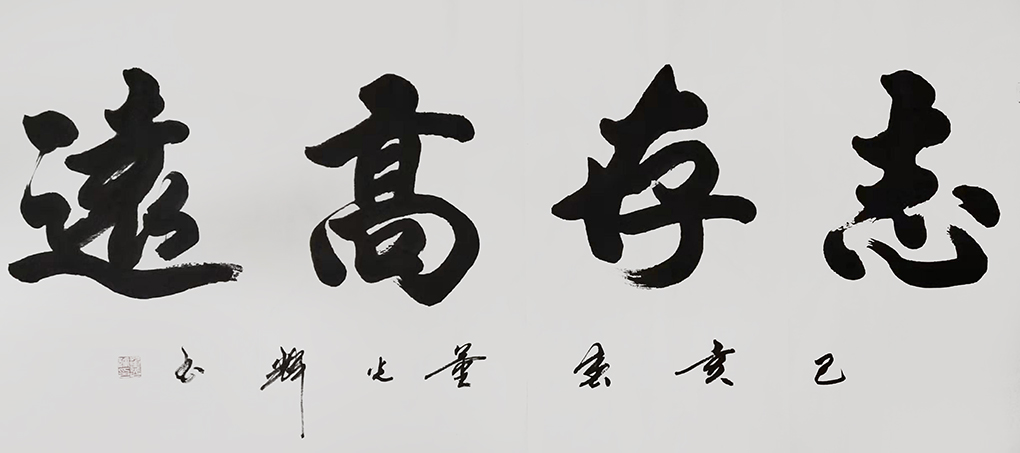 志存高遠
己亥春董光辉书